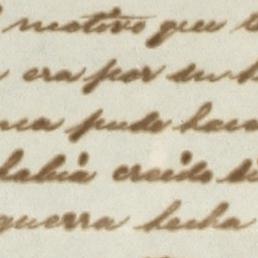 motivo que
era por su
pude hace
había creido
guerra hecha